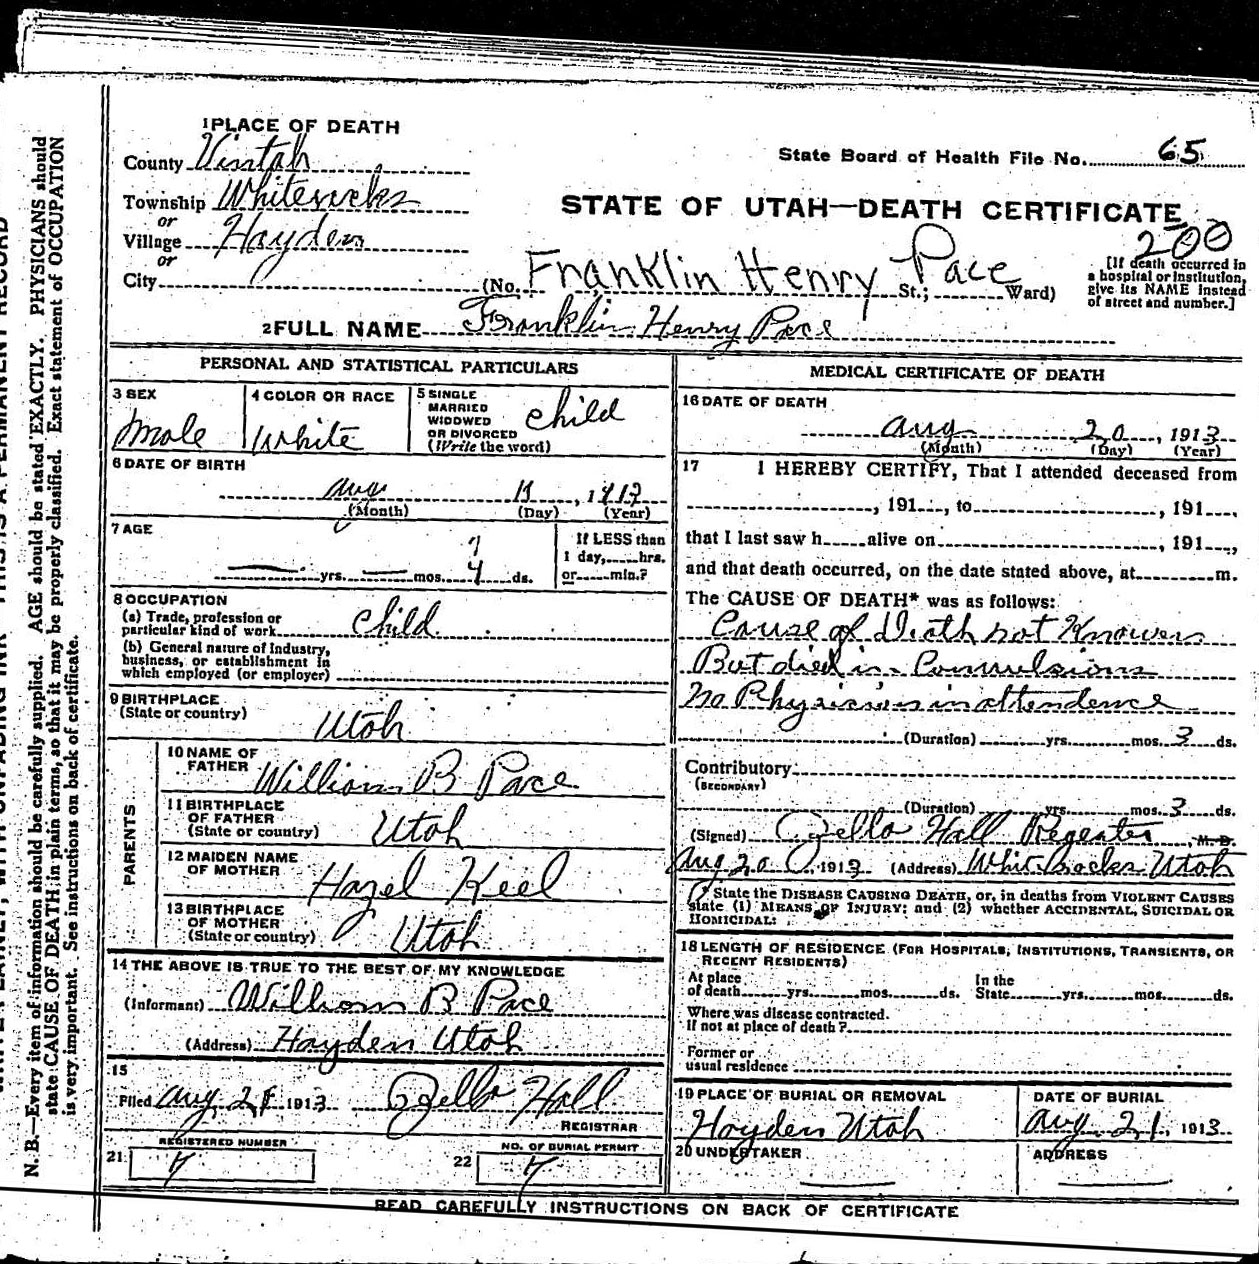 1 PLACE OF DEATH
County Uintah
Township Whiterocks
or
Village Hayden
or
City
State Board of Health File No. 65
STATE OF UTAH—DEATH CERTIFICATE
200
(No. Franklin Henry Pace St.; Ward)
[If death occurred in
a hospital or institution,
give its NAME instead
of street and number.]
2 FULL NAME Franklin Henry Pace
PERSONAL AND STATISTICAL PARTICULARS
3 SEX
male
4 COLOR OR RACE
White
5 SINGLE
MARRIED
WIDOWED
OR DIVORCED
(Write the word)
child
6 DATE OF BIRTH
Aug 1913
(Month) (Day) (Year)
7 AGE
7
4
yrs. mos. ds.
If LESS than
1 day, hrs.
or min.?
8 OCCUPATION
(a) Trade, profession or
particular kind of work child
(b) General nature of Industry,
business, or establishment in
which employed (or employer)
9 BIRTHPLACE
(State or country)
Utah
PARENTS
10 NAME OF
FATHER
William B Pace
11 BIRTHPLACE
OF FATHER
(State or country) Utah
12 MAIDEN NAME
OF MOTHER
Hazel Keel
13 BIRTHPLACE
OF MOTHER
(State or country) Utah
14 THE ABOVE IS TRUE TO THE BEST OF MY KNOWLEDGE
(Informant) William B Pace
(Address) Hayden Utah
15
Filed Aug 21 1913 Hall
REGISTRAR
REGISTERED NUMBER
21 7
NO. OF BURIAL PERMIT
22 7
MEDICAL CERTIFICATE OF DEATH
16 DATE OF DEATH
Aug 20, 1913
(Month) (Day) (Year)
17 I HEREBY CERTIFY, That I attended deceased from
, 191 , to , 191 ,
that I last saw h alive on , 191 ,
and that death occurred, on the date stated above, at m.
The CAUSE OF DEATH* was as follows:
Cause of Death not Known
But died in Convulsions
No Physician in attendence
(Duration) yrs. mos. 3 ds.
Contributory
(SECONDARY)
(Duration) yrs. mos. 3 ds.
(Signed) Hall Regester, M. D.
Aug 20, 1913 (Address) White Rocks Utah
* State the DISEASE CAUSING DEATH, or, in deaths from VIOLENT CAUSES
state (1) MEANS OF INJURY; and (2) whether ACCIDENTAL, SUICIDAL OR
HOMICIDAL:
18 LENGTH OF RESIDENCE (FOR HOSPITALS, INSTITUTIONS, TRANSIENTS, OR
RECENT RESIDENTS)
At place
of death yrs. mos. ds.
In the
State yrs. mos. ds.
Where was disease contracted.
If not at place of death?
Former or
usual residence
19 PLACE OF BURIAL OR REMOVAL
Hayden Utah
DATE OF BURIAL
Aug 21, 1913
20 UNDERTAKER
ADDRESS
READ CAREFULLY INSTRUCTIONS ON BACK OF CERTIFICATE
N. B.—Every item of information should be carefully supplied. AGE should be stated EXACTLY. PHYSICIANS should
state CAUSE OF DEATH in plain terms, so that it may be properly classified. Exact statement of OCCUPATION
is very important. See instructions on back of certificate.